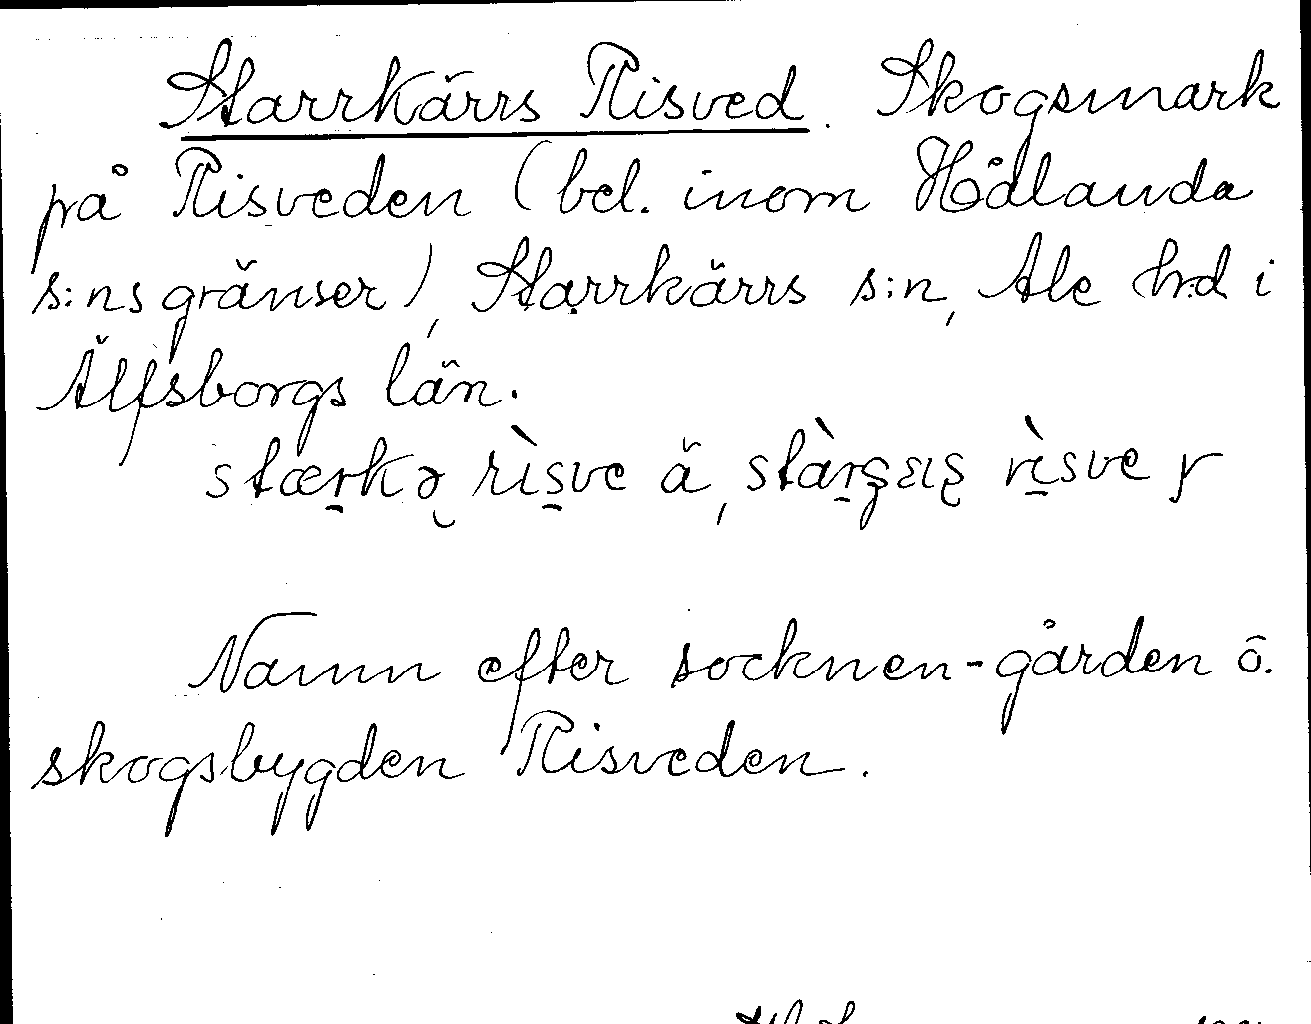 Starrkärrs Risved. Skogsmark
på Risveden (bel. inom Hålanda
s:ns gränser), Starrkärrs s:n, Ale hd i
Älfsborgs län.
rìsve ä,
Namn efter socknen-gården o.
skogsbygden Risveden.